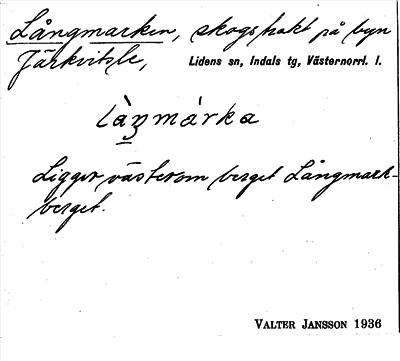 Långmarken, skogstrakt på byn
Järkvitsle, Lidens sn, Indals tg, Västernorrl. l.
làŋmárka
Ligger västerom berget Långmark-
berget.
VALTER JANSSON 1936